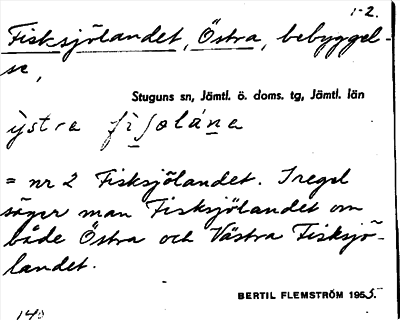 1-2.
Fisksjölandet, Östra, bebyggel-
se,
Stuguns sn, Jämtl. ö. doms. tg, Jämtl. län
ỳstra fìʃolána
= nr 2 Fisksjölandet. I regel
säger man Fisksjölandet om
både Östra och Västra Fisksjö-
landet.
BERTIL FLEMSTRÖM 1955.